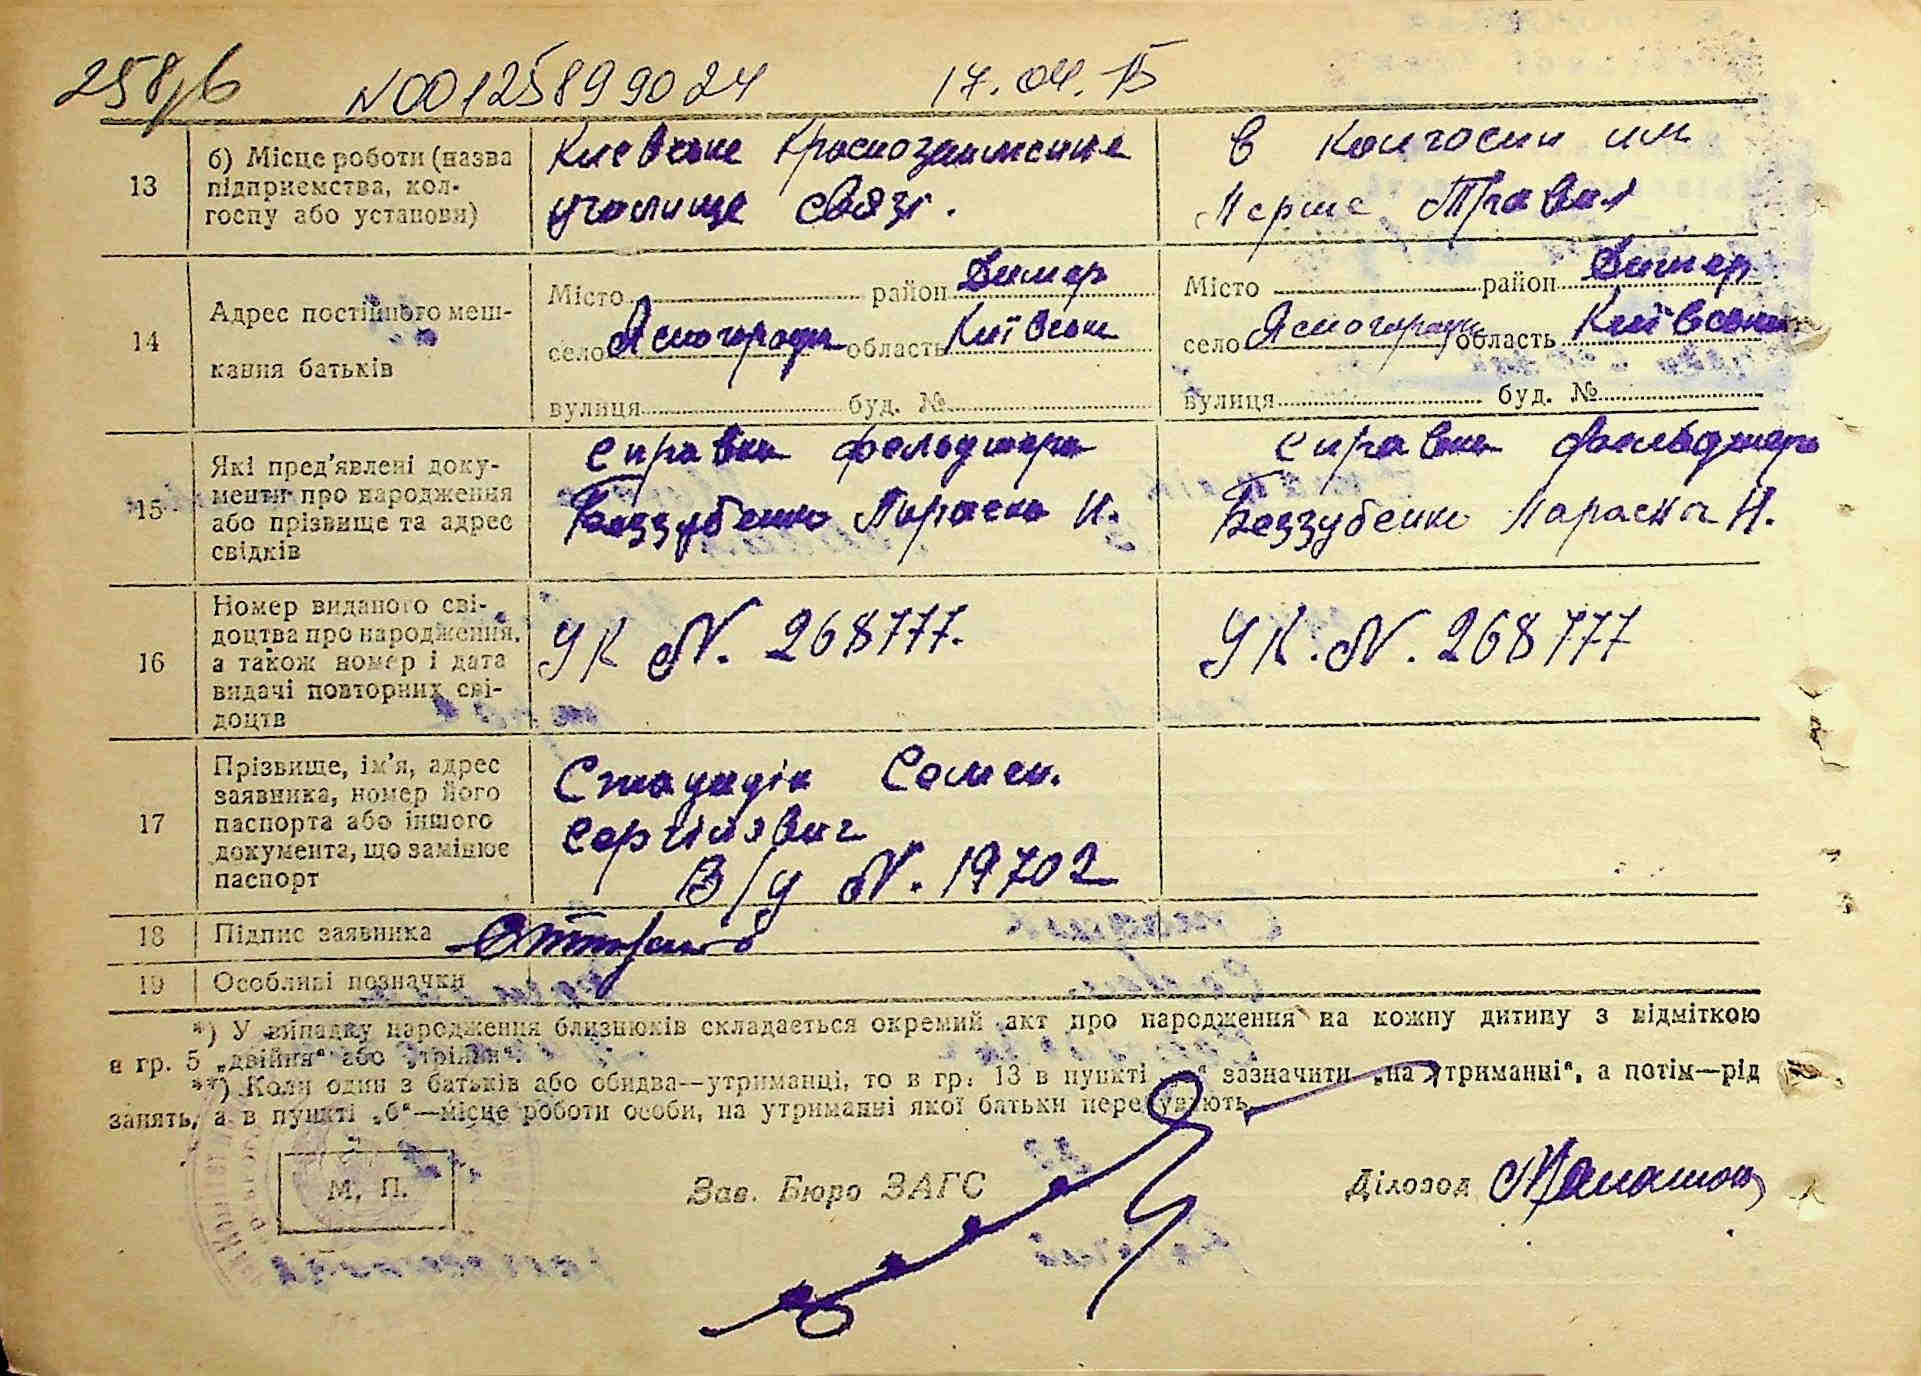 258/6 N00125899024 17.04.15
13
б) Місце роботи (назва підприємства, колгоспу або установи)
Киевське Краснознаменне
училище связі.
в колгоспи им
Перше Травня
14
Адрес постійного мешкання батьків
Місто район Димер
село Ясногородка область Київська
вулиця буд. №
Місто район Димер
село Ясногородка область Київська
вулиця буд. №
15
Які пред'явлені документи про народження або прізвище та адрес свідків
Справка фельдшера
Беззубенко Параска И.
Справка фельдшера
Беззубенко Параска И.
16
Номер виданого свідоцтва про народження, а також номер і дата видачі повторних свідоцтв
УК N. 268777.
УК. N. 268777
17
Прізвище, ім'я, адрес заявника, номер його паспорта або іншого документа, що замінює паспорт
Семен
Сергійявич
В/у N. 19702
18 Підпис заявника
19 Особливі позначки
*) У випадку народження близнюків складається окремий акт про народження на кожну дитину з відміткою
в гр. 5 „двійня“ або „трійня“
**) Коли один з батьків або обидва—утриманці, то в гр. 13 в пункті „а“ зазначити „на утриманні“, а потім—рід
занять, а в пункті „б“—місце роботи особи, на утриманні якої батьки перебувають
М. П.
Зав. Бюро ЗАГС
Діловод